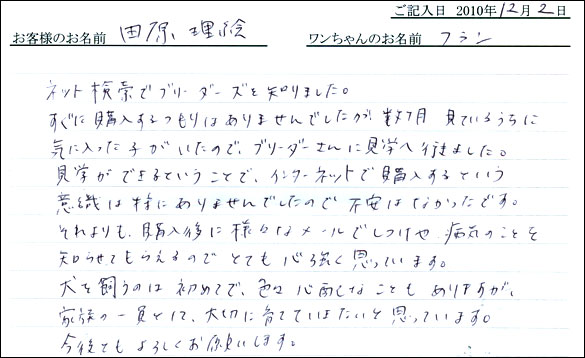 ご記入日 2010年12月2日
お客様のお名前 田原 理絵 ワンちゃんのお名前 フラン
ネット検索でブリーダーズを知りました。
すぐに購入するつもりはありませんでしたが、数ヶ月 見ているうちに
気に入った子がいたので、ブリーダーさんに見学へ行きました。
見学ができるということで、インターネットで購入するという
意識は特にありませんでしたので 不安はなかったです。
それよりも、購入後に様々なメールでしつけや 病気のことを
知らせてもらえるので とても 心強く 思っています。
犬を飼うのは 初めてで、色々 心配なことも ありますが、
家族の一員として、大切に育てていきたいと思っています。
今後とも よろしくお願いします。